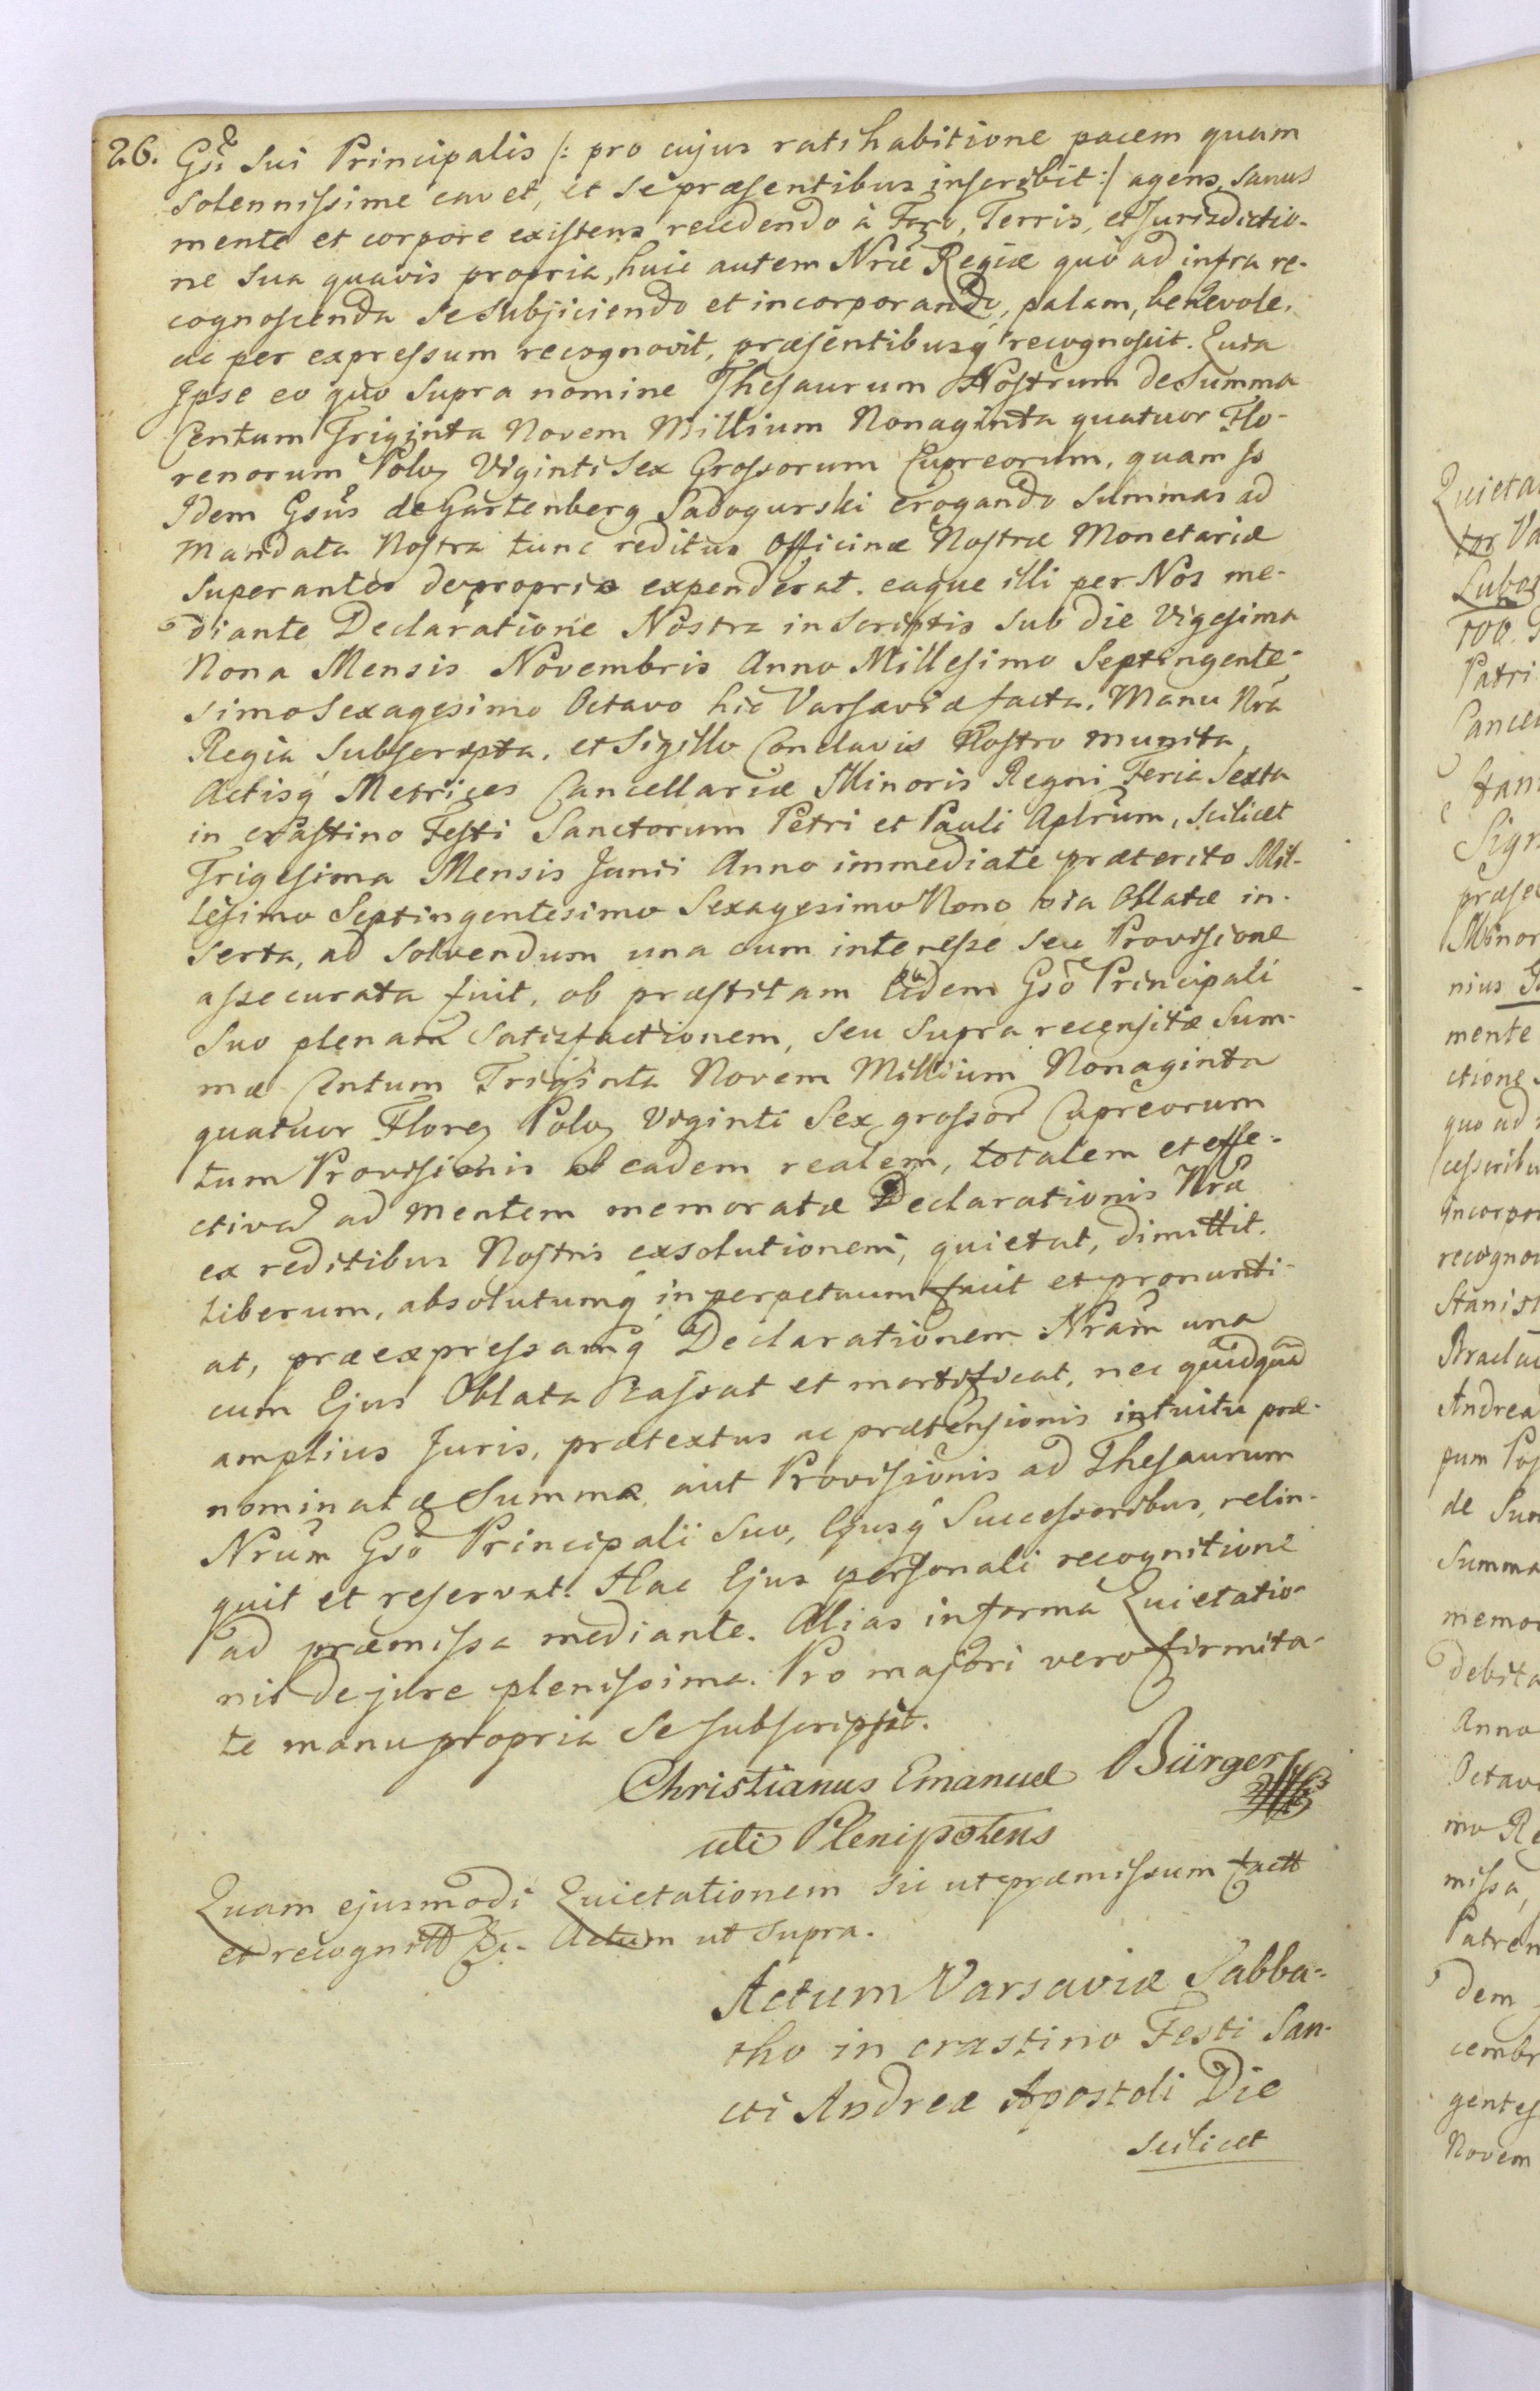 26. Gsi sui Principalis /: pro cujus ratihabitione pacem quam
solennissime cavet, et se præsentibus inscribit :/ agens, sanus
mente et corpore existens recedendo à Foro, Terris, et Jurisdictio-
ne sua quavis propria, huic autem Nræ Regiæ quò ad infra re-
cognoscenda se subjiciendo et incorporando, palam, benevole,
ac per expressum recognovit, præsentibusq recognoscit. Quia
Ipse eo quo supra nomine Thesaurum Nostrum de Summa
Centum Triginta Novem Millium Nonaginta quatuor Flo-
renorum Polo Viginti Sex Grossorum Cupreorum, quam
Idem Gsus de Gartenberg Sadogurski erogando summas ad
mandata Nostra tunc reditus Officinæ Nostræ Monetariæ
superantes de proprio expenderat. eaque illi per Nos me-
diante Declaratione Nostra in scriptis sub die Vigesima
Nona Mensis Novembris Anno Millesimo Septingente-
simo Sexagesimo Octavo hic Varsaviæ facta, Manu Nra
Regia Subscripta, et Sigillo Conclavis Nostro munita,
Actisq Metrices Cancellariæ Minoris Regni Feria Sexta
in crastino Festi Sanctorum Petri et Pauli Aplrum, scilicet
Trigesima Mensis Junii Anno immediate præterito Mil-
lesimo Septingentesimo Sexagesimo Nono via Oblatæ in-
serta, ad solvendum una cum interesse seu Provisione
assecurata fuit, ob præstitam eidem Gso Principali
Suo plenam satisfactionem, seu supra recensitæ Sum-
mæ Centum Triginta Novem Millium Nonaginta
quatuor Floren Polo Viginti Sex grossor Cupreorum
tum Provisionis ab eadem realem, totalem et effe-
ctivam ad mentem memoratæ Declarationis Nræ
ex reditibus Nostris exsolutionem, quietat, dimittit.
liberum, absolutumq in perpetuum facit et pronunti-
at, præexpressamq Declarationem Nram una
cum Ejus Oblata Cassat et mortificat, nec quidquam
amplius Juris, prætextus ac prætensionis intuitu præ-
nominatæ Summæ, aut Provisionis ad Thesaurum
Nrum Gso Principali Suo, Ejusq Successoribus, relin-
quit et reservat. Hac Ejus personali recognitione
ad præmissa mediante. Alias in forma Quietatio-
nis de jure plenissima. Pro majori vero firmita-
te manu propria se subscripsit.
Christianus Emanuel Bürger
uti Plenipotens
Quam ejusmodi Quietationem sic ut præmissum factt
et recognitt &c. Actum ut supra.
Actum Varsaviæ Sabba-
tho in crastino Festi San-
cti Andreæ Apostoli Die
scilicet
tor
Patri
Sign
nius
mente
ctione
quo ad
incorpor
recognov
Stanisl
Andrea
de Sum
Summa
memor
debita
Anno
Octavo
missa,
dem
cembr
gentes
Novem